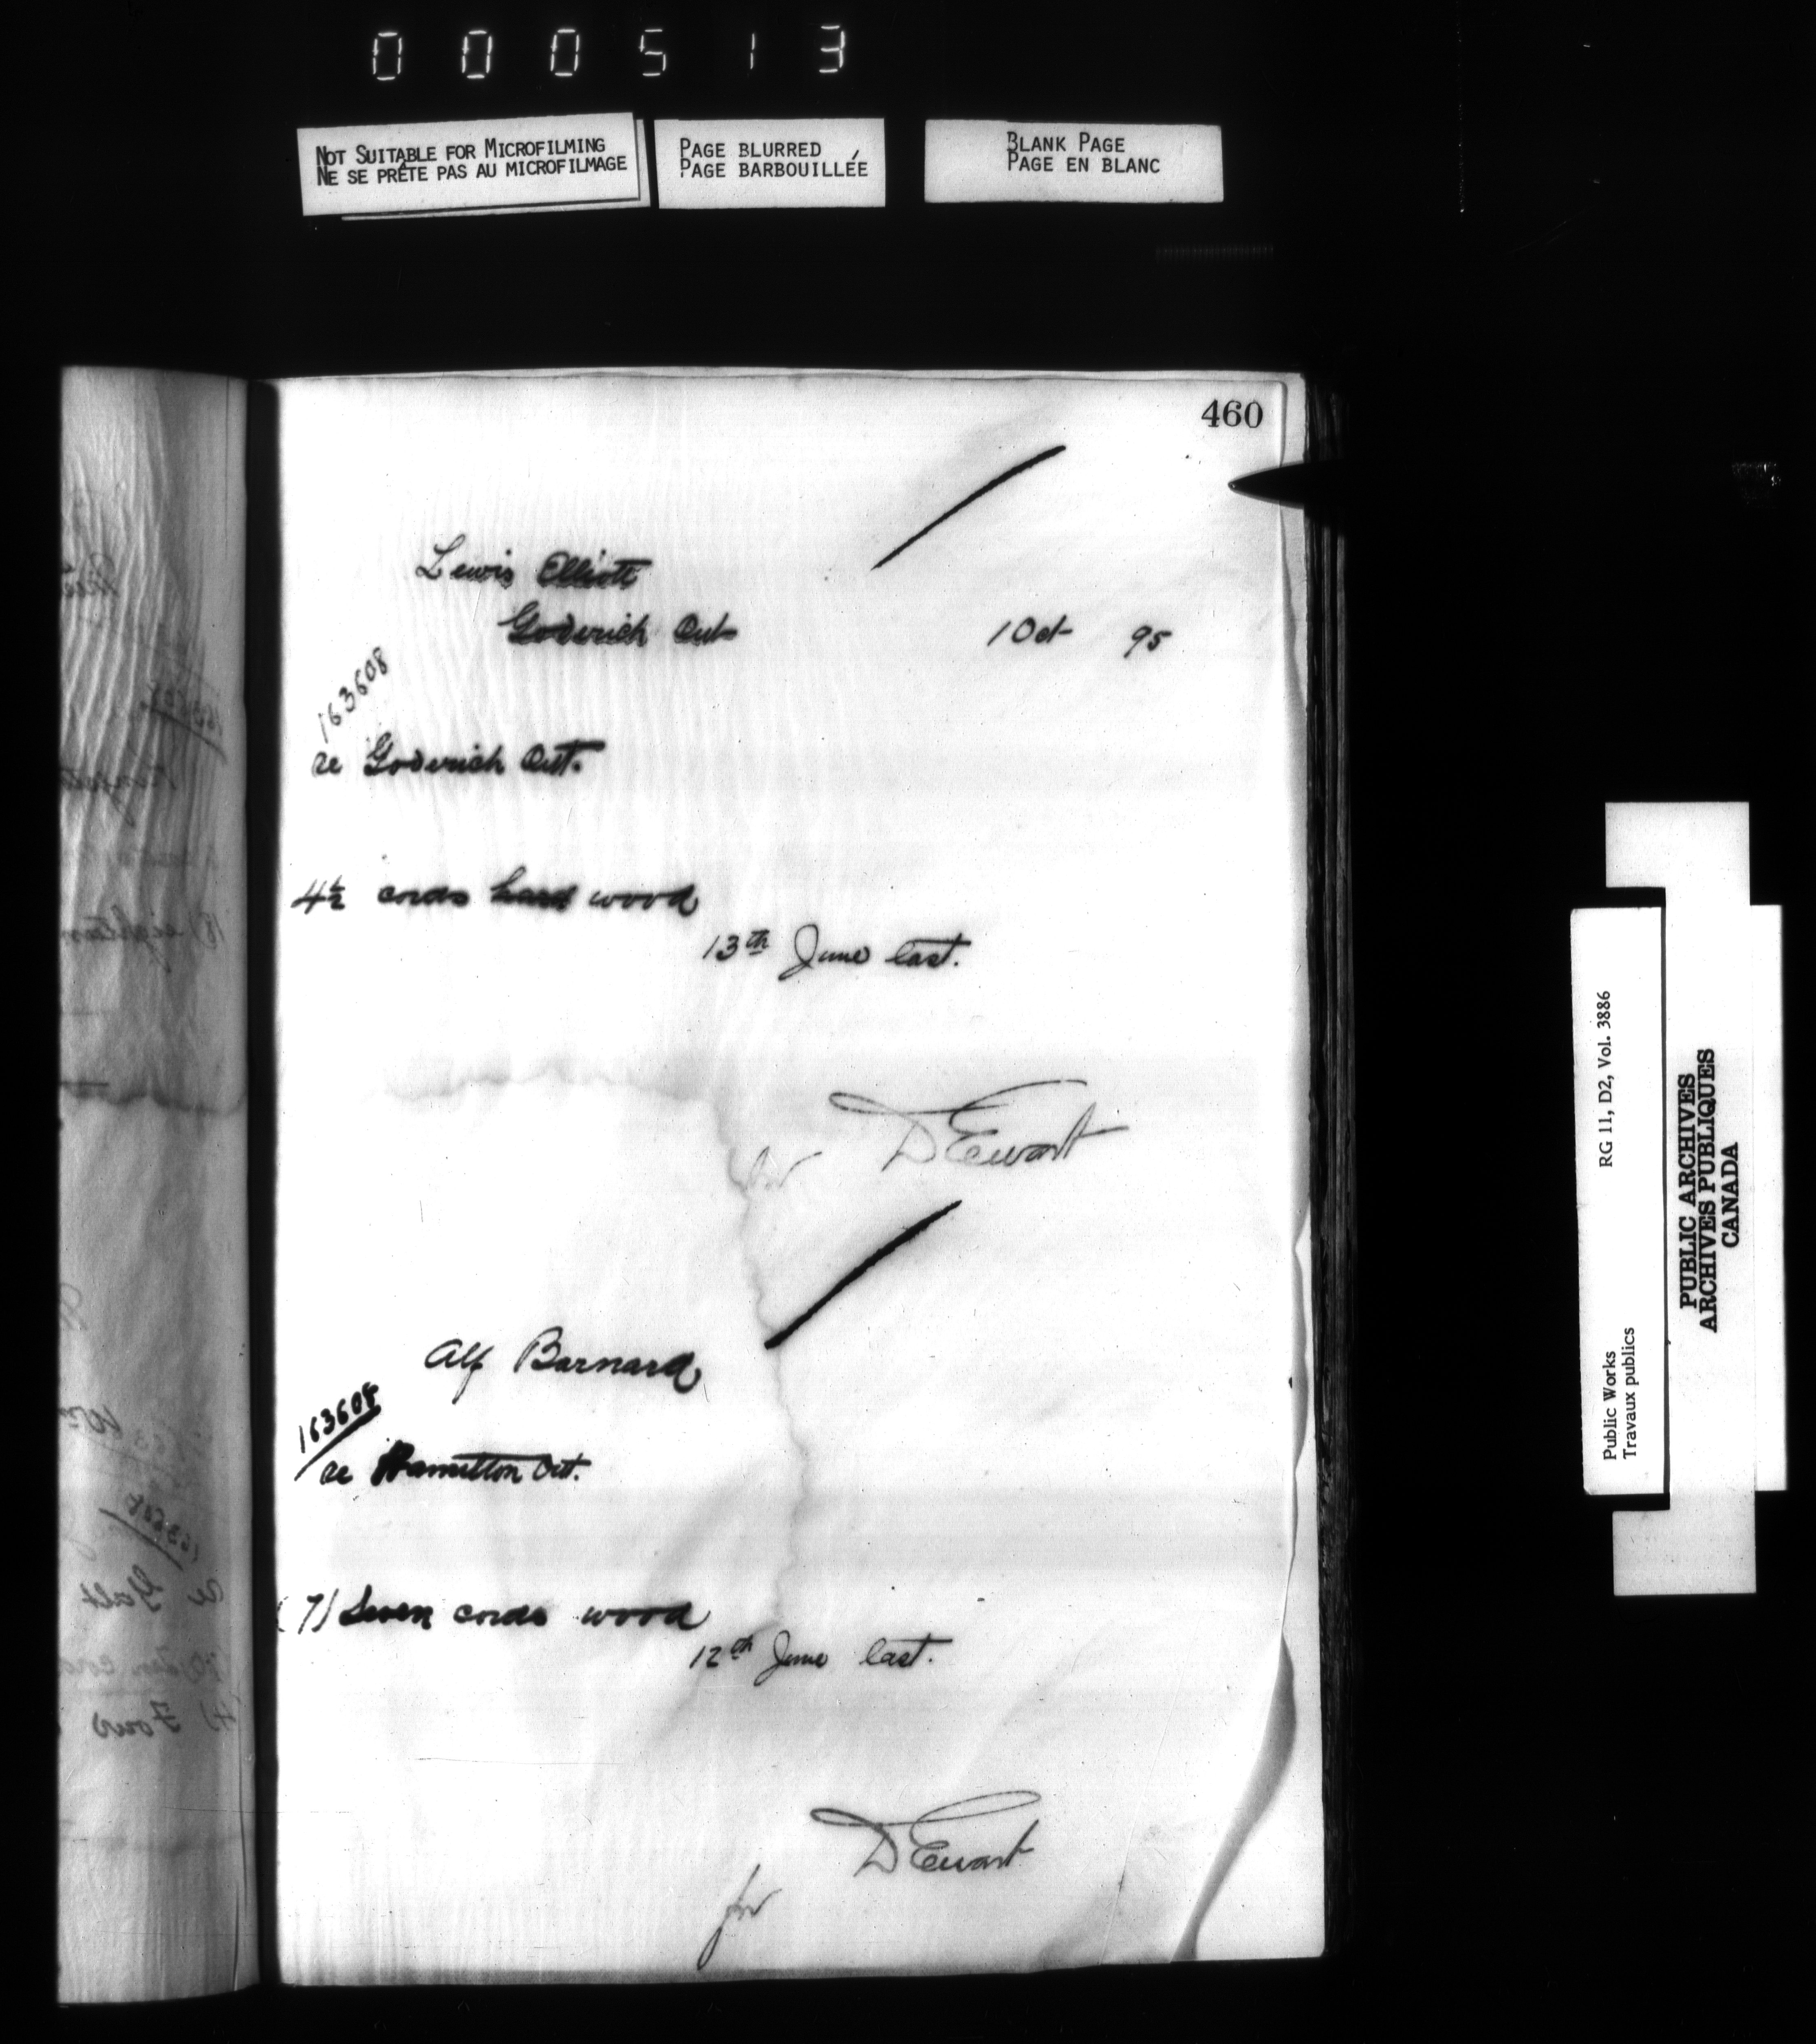 000513
NOT SUITABLE FOR MICROFILMING
NE SE PRÊTE PAS AU MICROFILMAGE
PAGE BLURRED
PAGE BARBOUILLÉE
BLANK PAGE
PAGE EN BLANC
460
Lewis Elliott
Goderich Ont
1 Oct 95
163608
re Goderich Ont.
4½ cords hard wood
13th June last.
for D Ewart
Alf Barnard
163608
re Hamilton Ont.
(7) Seven cords wood
12th June last.
D Ewart
for
Public Works
Travaux publics
RG 11, D2, Vol. 3886
PUBLIC ARCHIVES
ARCHIVES PUBLIQUES
CANADA